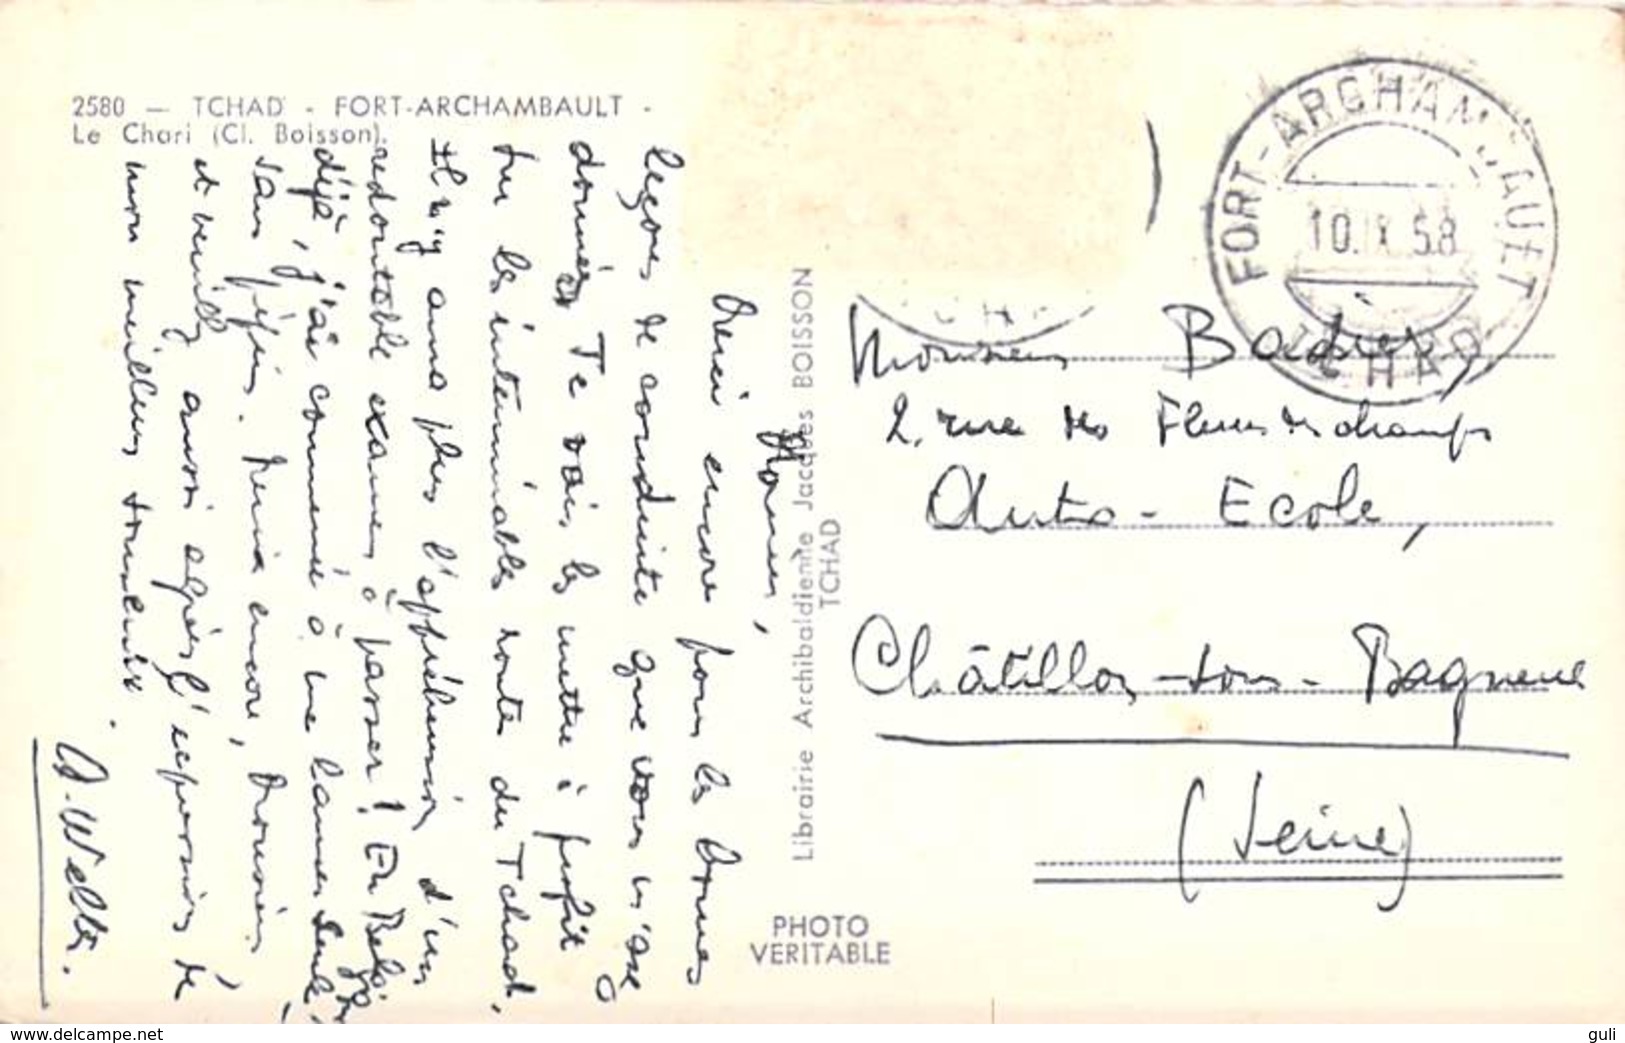 2580 — TCHAD - FORT-ARCHAMBAULT -
Le Chari (Cl. Boisson).
Monsieur,
Merci encore pour les bonnes
leçons de conduite que vous m'avez
données. Je vais les mettre à profit
sur les interminables routes du Tchad.
Il n'y aura plus l'appréhension d'un
redoutable examen à passer ! En Belgique
déjà, j'ai commencé à me lancer seule,
sans
Merci encore, Monsieur
et veuillez aussi agréer l'expression de
mon meilleur souvenir.
A. Welter.
Librairie Archibaldienne Jacques BOISSON
TCHAD
PHOTO
VERITABLE
FORT-ARCHAMBAULT
10.IX 58
TCHAD
Monsieur Badier,
2, rue des Fleurs des champs
Auto-Ecole,
Châtillon-sous-Bagneux
(Seine)
www.delcampe.net
guli